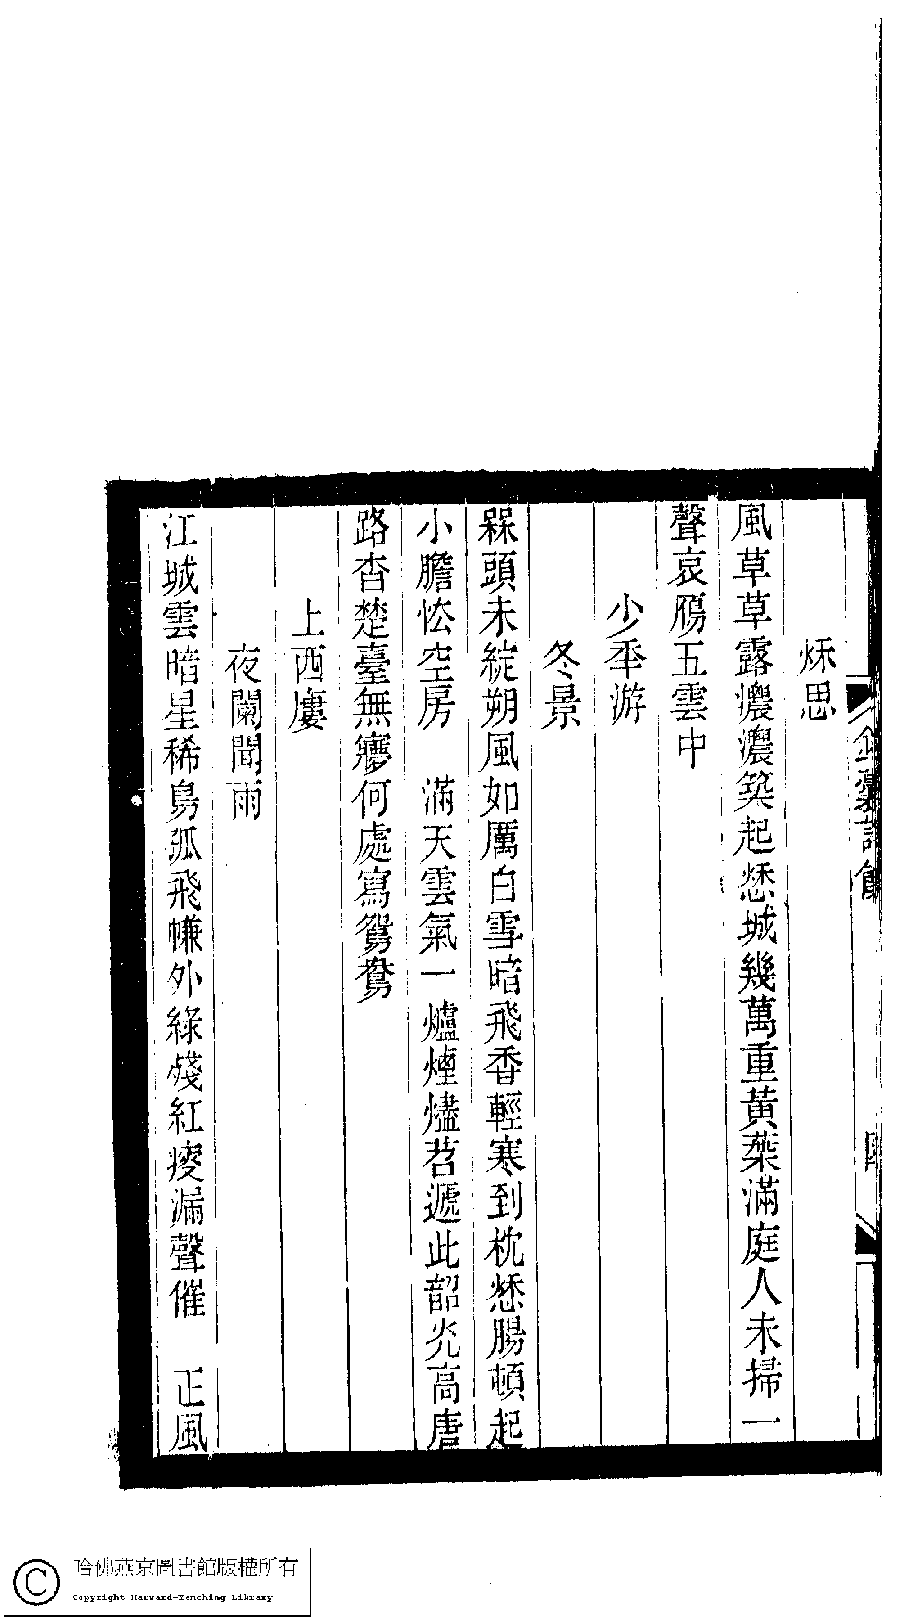 秌思
風草草露濃濃築起愁城幾萬重黃葉滿庭人未掃一
聲哀鴈五雲中
少秊游
冬景
槑頭未綻朔風如厲白雪暗飛香輕寒到枕愁腸頓起
小膽忪空房　滿天雲氣一爐煙燼苕遞此韶光高唐
路杳楚臺無㝱何處寫鴛鴦
上西廔
夜闌聞雨
江城雲暗星稀鳥孤飛㡘外綠殘紅瘦漏聲催　正風
詩餘
四
哈佛燕京圖書館版權所有
Copyright Harvard-Yenching Library